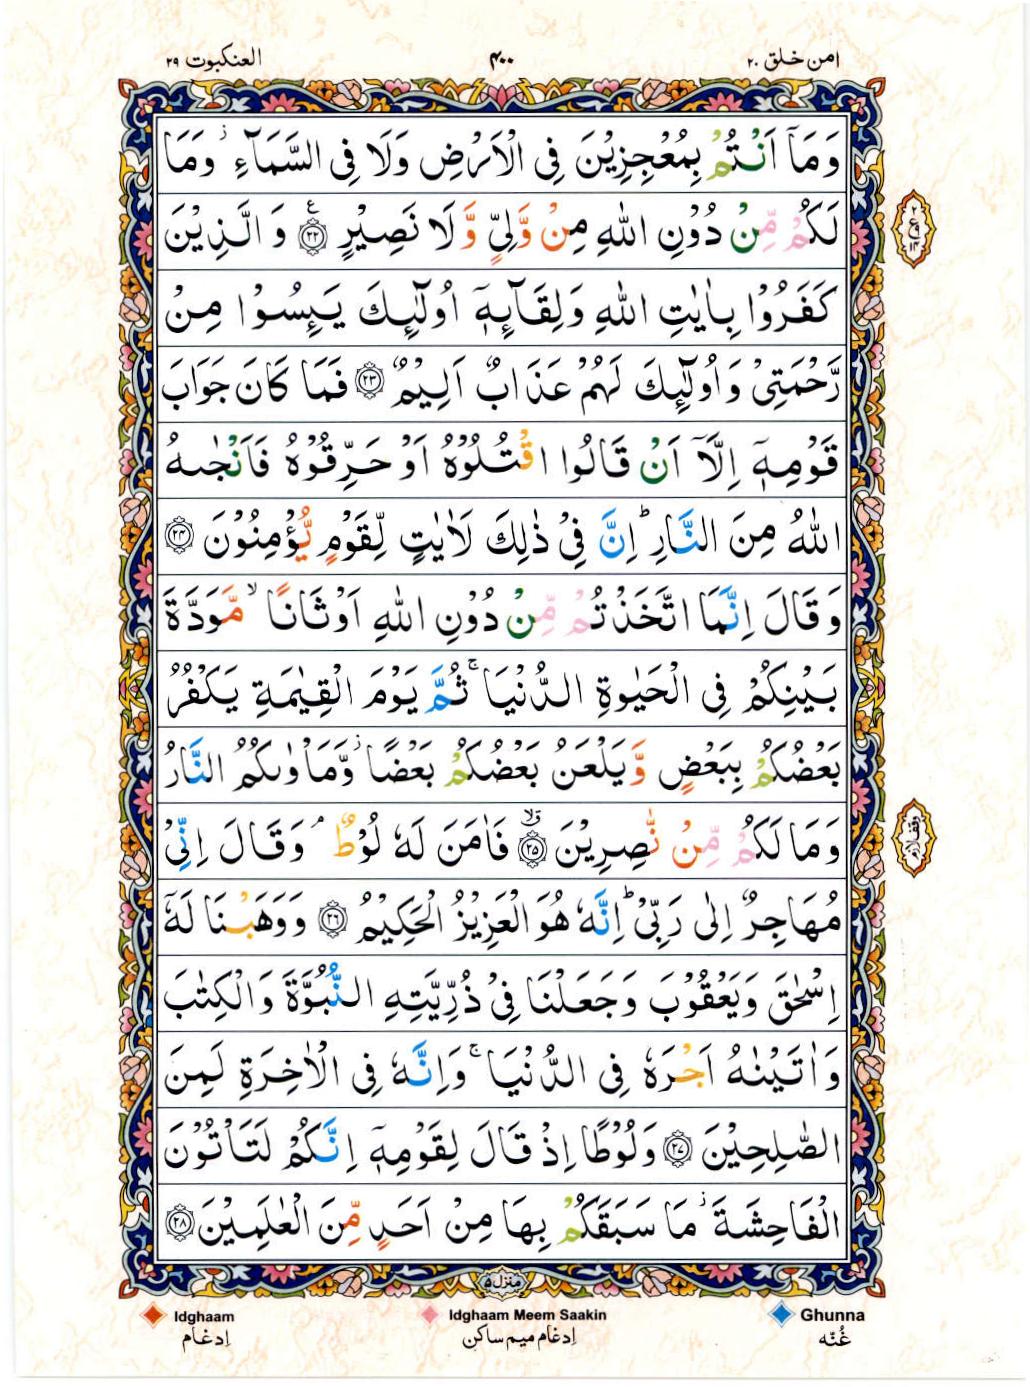 العنكبوت ٢٩
٤٠٠
امن خلق ٢٠
وَمَاۤ اَنْتُمْ بِمُعْجِزِيْنَ فِى الْاَرْضِ وَلَا فِى السَّمَآءِ ۫ وَمَا
لَكُمْ مِّنْ دُوْنِ اللّٰهِ مِنْ وَّلِيٍّ وَّلَا نَصِيْرٍ ۧ ﴿۲۲﴾ وَ الَّذِيْنَ
كَفَرُوْا بِاٰيٰتِ اللّٰهِ وَلِقَآئِهٖۤ اُولٰٓئِكَ يَئِسُوْا مِنْ
رَّحْمَتِىْ وَاُولٰٓئِكَ لَهُمْ عَذَابٌ اَلِيْمٌ ﴿۲۳﴾ فَمَا كَانَ جَوَابَ
قَوْمِهٖۤ اِلَّاۤ اَنْ قَالُوا اقْتُلُوْهُ اَوْ حَرِّقُوْهُ فَاَنْجٰىهُ
اللّٰهُ مِنَ النَّارِ ؕ اِنَّ فِىْ ذٰلِكَ لَاٰيٰتٍ لِّقَوْمٍ يُّؤْمِنُوْنَ ﴿۲۴﴾
وَقَالَ اِنَّمَا اتَّخَذْتُمْ مِّنْ دُوْنِ اللّٰهِ اَوْثَانًا ۙ مَّوَدَّةَ
بَيْنِكُمْ فِى الْحَيٰوةِ الدُّنْيَا ۚ ثُمَّ يَوْمَ الْقِيٰمَةِ يَكْفُرُ
بَعْضُكُمْ بِبَعْضٍ وَّيَلْعَنُ بَعْضُكُمْ بَعْضًا ۫ وَّمَاْوٰىكُمُ النَّارُ
وَمَا لَكُمْ مِّنْ نّٰصِرِيْنَ ﴿۲۵﴾ فَاٰمَنَ لَهٗ لُوْطٌ ۘ وَقَالَ اِنِّىْ
مُهَاجِرٌ اِلٰى رَبِّىْ ؕ اِنَّهٗ هُوَ الْعَزِيْزُ الْحَكِيْمُ ﴿۲۶﴾ وَوَهَبْنَا لَهٗۤ
اِسْحٰقَ وَيَعْقُوْبَ وَجَعَلْنَا فِىْ ذُرِّيَّتِهِ النُّبُوَّةَ وَالْكِتٰبَ
وَاٰتَيْنٰهُ اَجْرَهٗ فِى الدُّنْيَا ۚ وَاِنَّهٗ فِى الْاٰخِرَةِ لَمِنَ
الصّٰلِحِيْنَ ﴿۲۷﴾ وَلُوْطًا اِذْ قَالَ لِقَوْمِهٖۤ اِنَّكُمْ لَتَاْتُوْنَ
الْفَاحِشَةَ ۫ مَا سَبَقَكُمْ بِهَا مِنْ اَحَدٍ مِّنَ الْعٰلَمِيْنَ ﴿۲۸﴾
وقف لازم
منزل ۵
Idghaam
اِدغام
Idghaam Meem Saakin
اِدغام میم ساکن
Ghunna
غُنّه